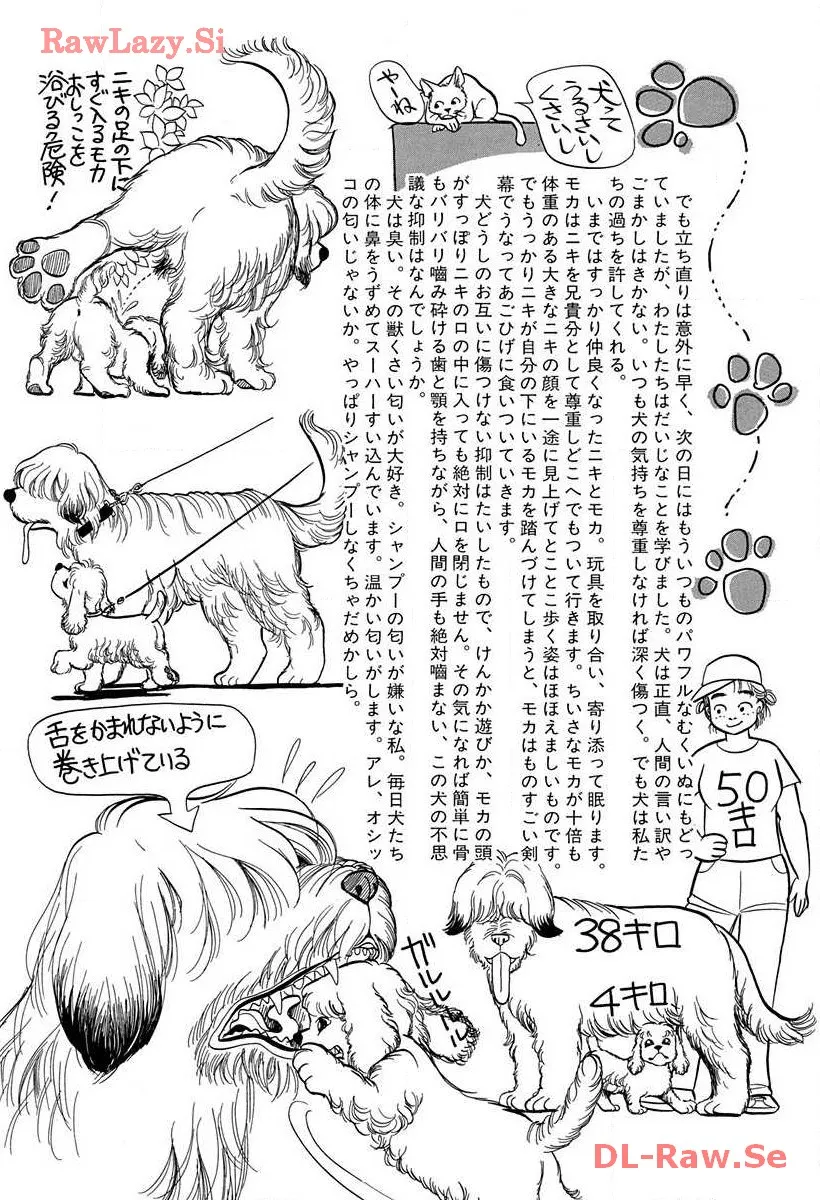 RawLazy.Si
犬って
うるさいし
くさいし
やーね
ニキの足の下に
すぐ入るモカ
おしっこを
浴びるク危険！
でも立ち直りは意外に早く、次の日にはもういつものパワフルなむくいぬにもどっ
ていましたが、わたしたちはだいじなことを学びました。犬は正直、人間の言い訳や
ごまかしはきかない。いつも犬の気持ちを尊重しなければ深く傷つく。でも犬は私た
ちの過ちを許してくれる。
いまではすっかり仲良くなったニキとモカ。玩具を取り合い、寄り添って眠ります。
モカはニキを兄貴分として尊重しどこへでもついて行きます。ちいさなモカが十倍も
体重のある大きなニキの顔を一途に見上げてとことこ歩く姿はほほえましいものです。
でもうっかりニキが自分の下にいるモカを踏んづけてしまうと、モカはものすごい剣
幕でうなってあごひげに食いついていきます。
犬どうしのお互いに傷つけない抑制はたいしたもので、けんか遊びか、モカの頭
がすっぽりニキの口の中に入っても絶対に口を閉じません。その気になれば簡単に骨
もバリバリ嚙み砕ける歯と顎を持ちながら、人間の手も絶対嚙まない、この犬の不思
議な抑制はなんでしょうか。
犬は臭い。その獣くさい匂いが大好き。シャンプーの匂いが嫌いな私。毎日犬たち
の体に鼻をうずめてスーハーすい込んでいます。温かい匂いがします。アレ、オシッ
コの匂いじゃないか。やっぱりシャンプーしなくちゃだめかしら。
舌をかまれないように
巻き上げている
50
キロ
38キロ
4キロ
ガルルルール
DL-Raw.Se